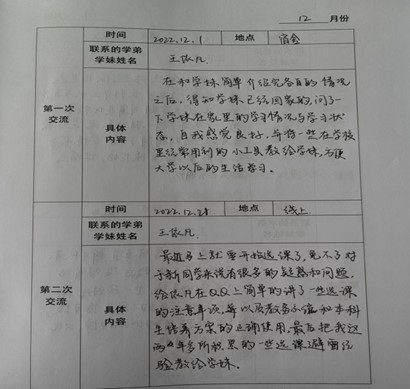 12 月份
第一次交流
时间 2022.12.1 地点 宿舍
联系的学弟学妹姓名 王依凡
具体内容
在和学妹简单介绍完各自的情况
之后，得知学妹已经回家的，问了一
下学妹在家里的学习情况与学习状
态，自我感觉良好，并将一些在学校
里经常用到的小工具教给学妹，方便
大学以后的生活学习。
第二次交流
时间 2022.12.28 地点 线上
联系的学弟学妹姓名 王依凡
具体内容
最近马上就要开始选课了，免不了对
于新同学来说有很多的疑惑和问题，
给依凡在QQ上简单的讲了一些选课
的注意事项，以及教务小程和本科
生培养方案的正确使用，最后把我这
两年多所积累的一些选课避雷经
验教给学妹。